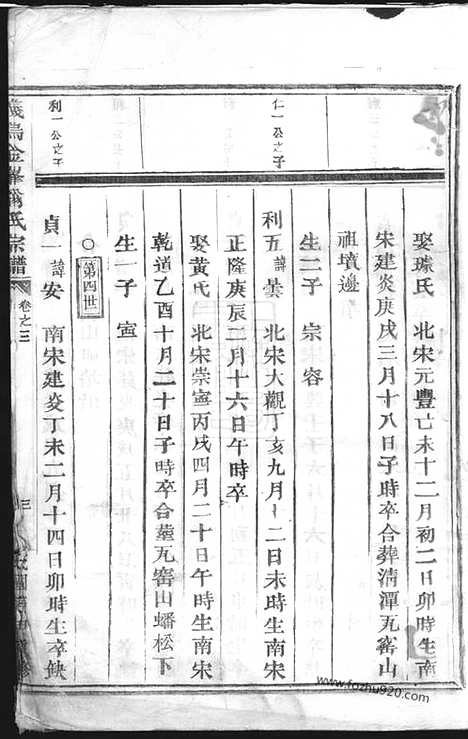 娶璩氏 北宋元豐亡未十二月初二日卯時生南
宋建炎庚戌三月十八日子時卒合葬清潭瓦窖山
祖墳邊
生二子 宗 容
仁一公之子
利五 諱曇 北宋大觀丁亥九月十二日未時生南宋
正隆庚辰二月十六日午時卒
娶黃氏 北宋崇寧丙戌四月二十日午時生南宋
乾道乙酉十月二十日子時卒合塟瓦窖山蟠松下
生一子 寊
○第四世
利一公之子
貞一 諱安 南宋建炎丁未二月十四日卯時生卒缺
義烏金峯 氏宗譜 卷之三 三
www.fozhu920.com